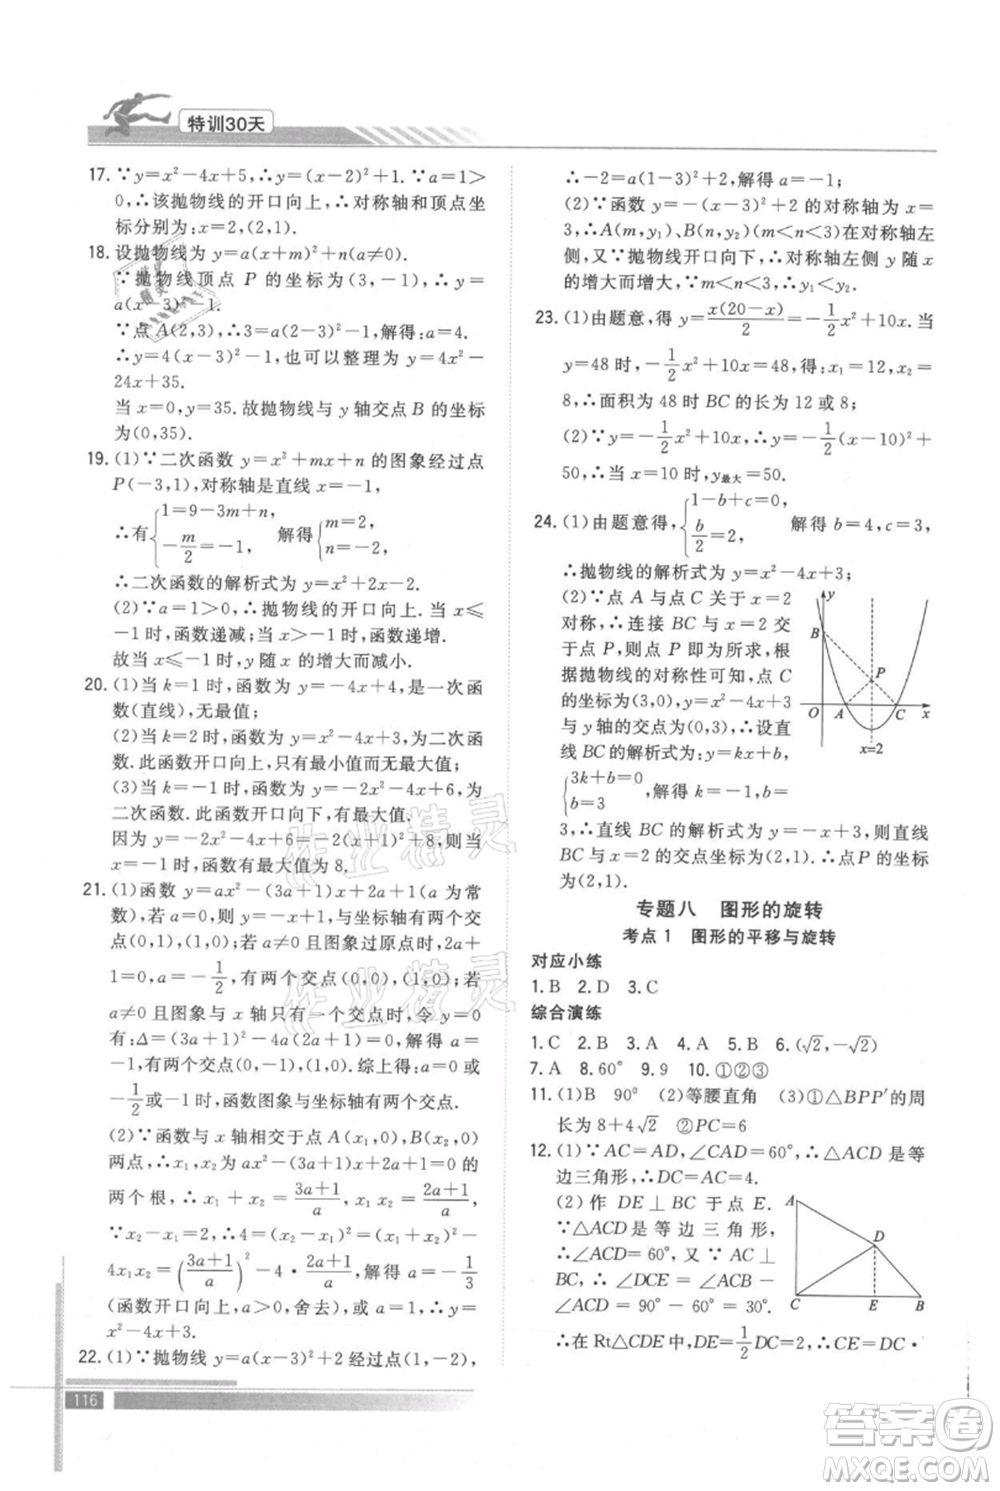 特训30天
17. ∵y=x²-4x+5,∴y=(x-2)²+1. ∵a=1>
0,∴该抛物线的开口向上,∴对称轴和顶点坐
标分别为:x=2,(2,1)
18. 设抛物线为 y=a(x+m)²+n(a≠0).
∵抛物线顶点 P 的坐标为(3,-1),∴y=
a(x-3)²-1.
∵点 A(2,3),∴3=a(2-3)²-1,解得:a=4.
∴y=4(x-3)²-1,也可以整理为 y=4x²-
24x+35.
当 x=0,y=35. 故抛物线与 y 轴交点 B 的坐标
为(0,35).
19. (1)∵二次函数 y=x²+mx+n 的图象经过点
P(-3,1),对称轴是直线 x=-1,
∴有{1=9-3m+n, -m/2=-1, 解得{m=2, n=-2.
∴二次函数的解析式为 y=x²+2x-2.
(2)∵a=1>0,∴抛物线的开口向上. 当 x≤
-1 时,函数递减;当 x>-1 时,函数递增.
故当 x≤-1 时,y 随 x 的增大而减小.
20. (1)当 k=1 时,函数为 y=-4x+4,是一次函
数(直线),无最值;
(2)当 k=2 时,函数为 y=x²-4x+3,为二次函
数. 此函数开口向上,只有最小值而无最大值;
(3)当 k=-1 时,函数为 y=-2x²-4x+6,为
二次函数. 此函数开口向下,有最大值.
因为 y=-2x²-4x+6=-2(x+1)²+8,所以当
x=-1 时,函数有最大值为 8.
21. (1)函数 y=ax²-(3a+1)x+2a+1(a 为常
数),若 a=0,则 y=-x+1,与坐标轴有两个交
点(0,1),(1,0);若 a≠0 且图象过原点时,2a+1
=0,a=-1/2,有两个交点(0,0),(1,0);若
a≠0 且图象与 x 轴只有一个交点时,令 y=0
有:Δ=(3a+1)²-4a(2a+1)=0,解得 a=-1,
有两个交点(0,-1),(1,0). 综上得:a=0 或-1 或
-1/2时,函数图象与坐标轴有两个交点.
(2)∵函数与 x 轴相交于点 A(x₁,0),B(x₂,0)
两点,∴x₁,x₂ 为 ax²-(3a+1)x+2a+1=0 的
两个根,∴x₁+x₂=(3a+1)/a,x₁x₂=(2a+1)/a,
∵x₂-x₁=2,∴4=(x₂-x₁)²=(x₁+x₂)²-
4x₁x₂=((3a+1)/a)²-4·(2a+1)/a,解得 a=-1/3
(函数开口向上,a>0,舍去),或 a=1,∴y=
x²-4x+3.
22. (1)∵抛物线 y=a(x-3)²+2 经过点(1,-2),
116
∴-2=a(1-3)²+2,解得 a=-1.
(2)∵函数 y=-(x-3)²+2 的对称轴为 x=
3,∴A(m,y₁)、B(n,y₂)(m<n<3)在对称轴左
侧,又∵抛物线开口向下,∴对称轴左侧 y 随 x
的增大而增大,∵m<n<3,∴y₁<y₂.
23. (1)由题意,得 y=x(20-x)/2=-1/2x²+10x. 当
y=48 时,-1/2x²+10x=48,得:x₁=12,x₂=
8,∴面积为 48 时 BC 的长为 12 或 8;
(2)∵y=-1/2x²+10x,∴y=-1/2(x-10)²+
50,∴当 x=10 时,y最大=50.
24. (1)由题意得,{1-b+c=0, b/2=2, 解得 b=4,c=3,
∴抛物线的解析式为 y=x²-4x+3;
(2)∵点 A 与点 C 关于 x=2
对称,∴连接 BC 与 x=2 交
于点 P,则点 P 即为所求,根
据抛物线的对称性可知,点 C
的坐标为(3,0),y=x²-4x+3
与 y 轴的交点为(0,3),∴设直
线 BC 的解析式为:y=kx+b,
{3k+b=0, b=3, 解得,k=-1,b=
3,∴直线 BC 的解析式为:y=-x+3,则直线
BC 与 x=2 的交点坐标为:(2,1),∴点 P 的坐标
为:(2,1).
y
B
P
O
A
C
x
x=2
专题八 图形的旋转
考点1 图形的平移与旋转
对应小练
1. B 2. D 3. C
综合演练
1. C 2. B 3. A 4. A 5. B 6. (√2,-√2)
7. A 8. 60° 9. 9 10. ①②③
11. (1)B 90° (2)等腰直角 (3)①△BPP′的周
长为 8+4√2 ②PC=6
12. (1)∵AC=AD,∠CAD=60°,∴△ACD 是等
边三角形,∴DC=AC=4.
(2)作 DE⊥BC 于点 E.
∵△ACD 是等边三角形,
∴∠ACD=60°,又∵AC⊥
BC,∴∠DCE=∠ACB-
∠ACD=90°-60°=30°,
∴在 Rt△CDE 中,DE=1/2DC=2,∴CE=DC·
A
D
C
E
B
作业精灵
作业精灵
答案圈
MXQE.COM